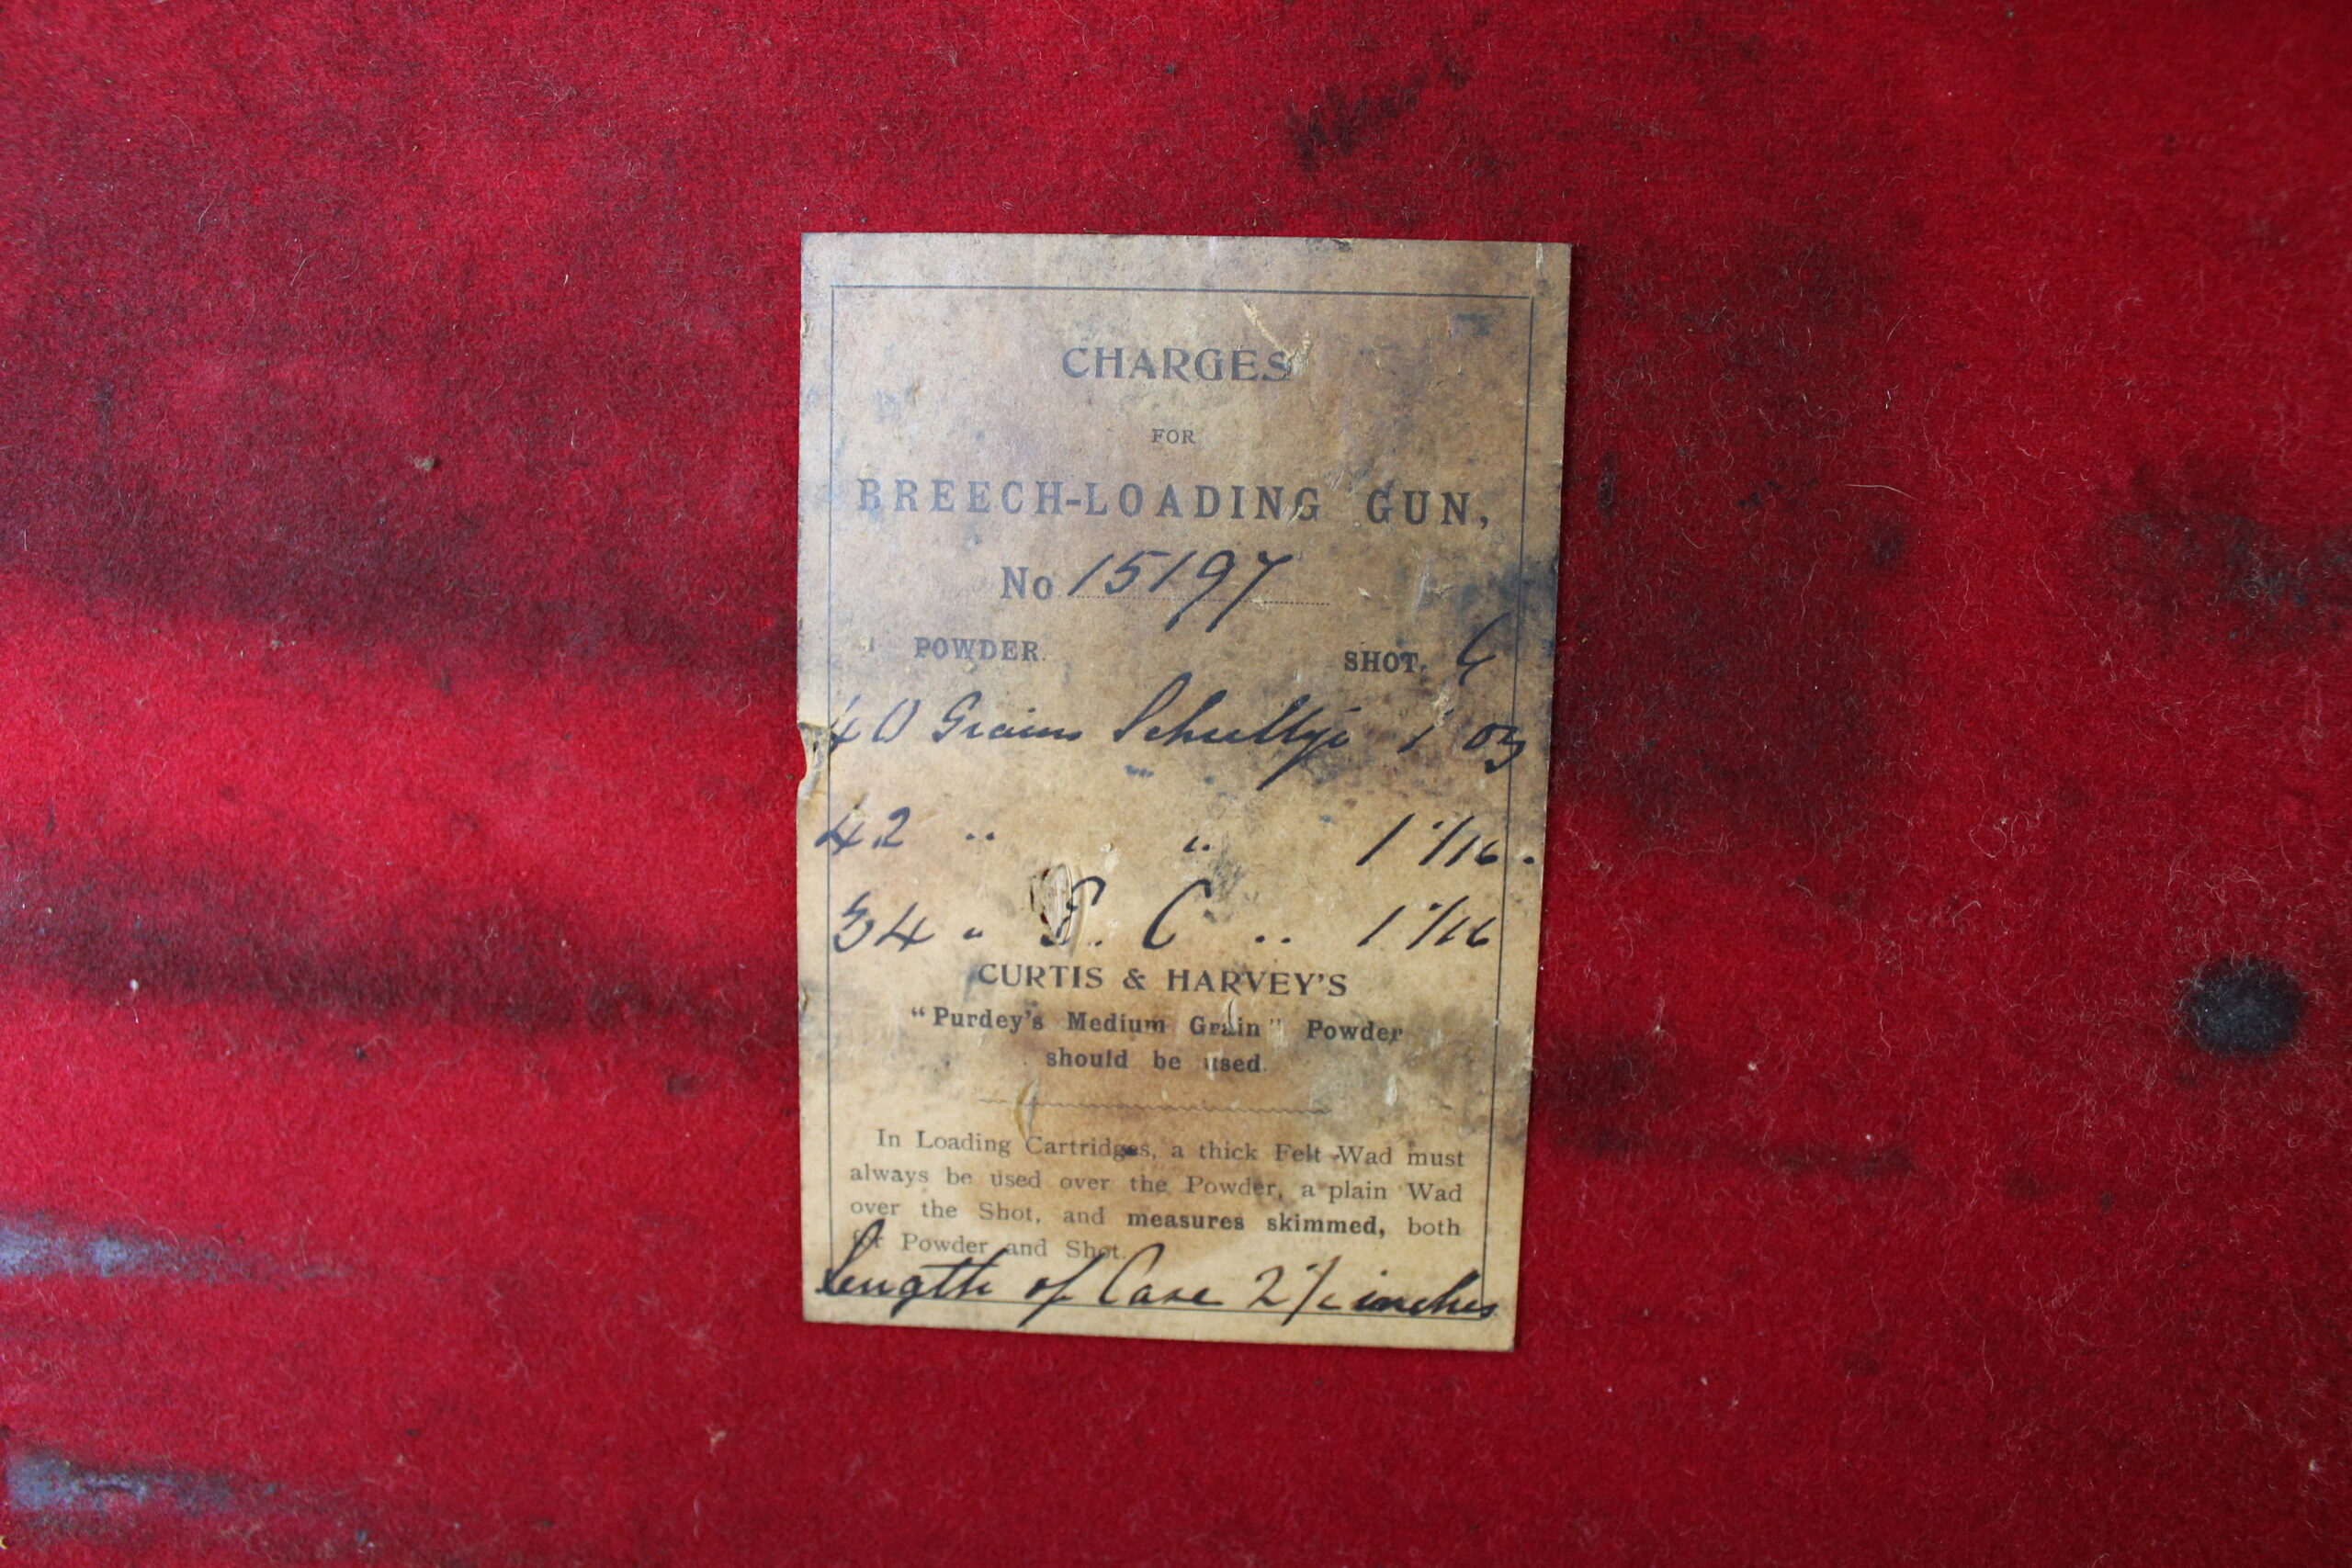 CHARGES
FOR
BREECH-LOADING GUN,
No 15197
POWDER. SHOT. 6
40 Grains Schultze 1 oz
42 " " 1 1/16.
34 " E. C " 1 1/16
CURTIS & HARVEY'S
"Purdey's Medium Grain" Powder
should be used.
In Loading Cartridges, a thick Felt Wad must
always be used over the Powder, a plain Wad
over the Shot, and measures skimmed, both
for Powder and Shot.
Length of Case 2 1/2 inches